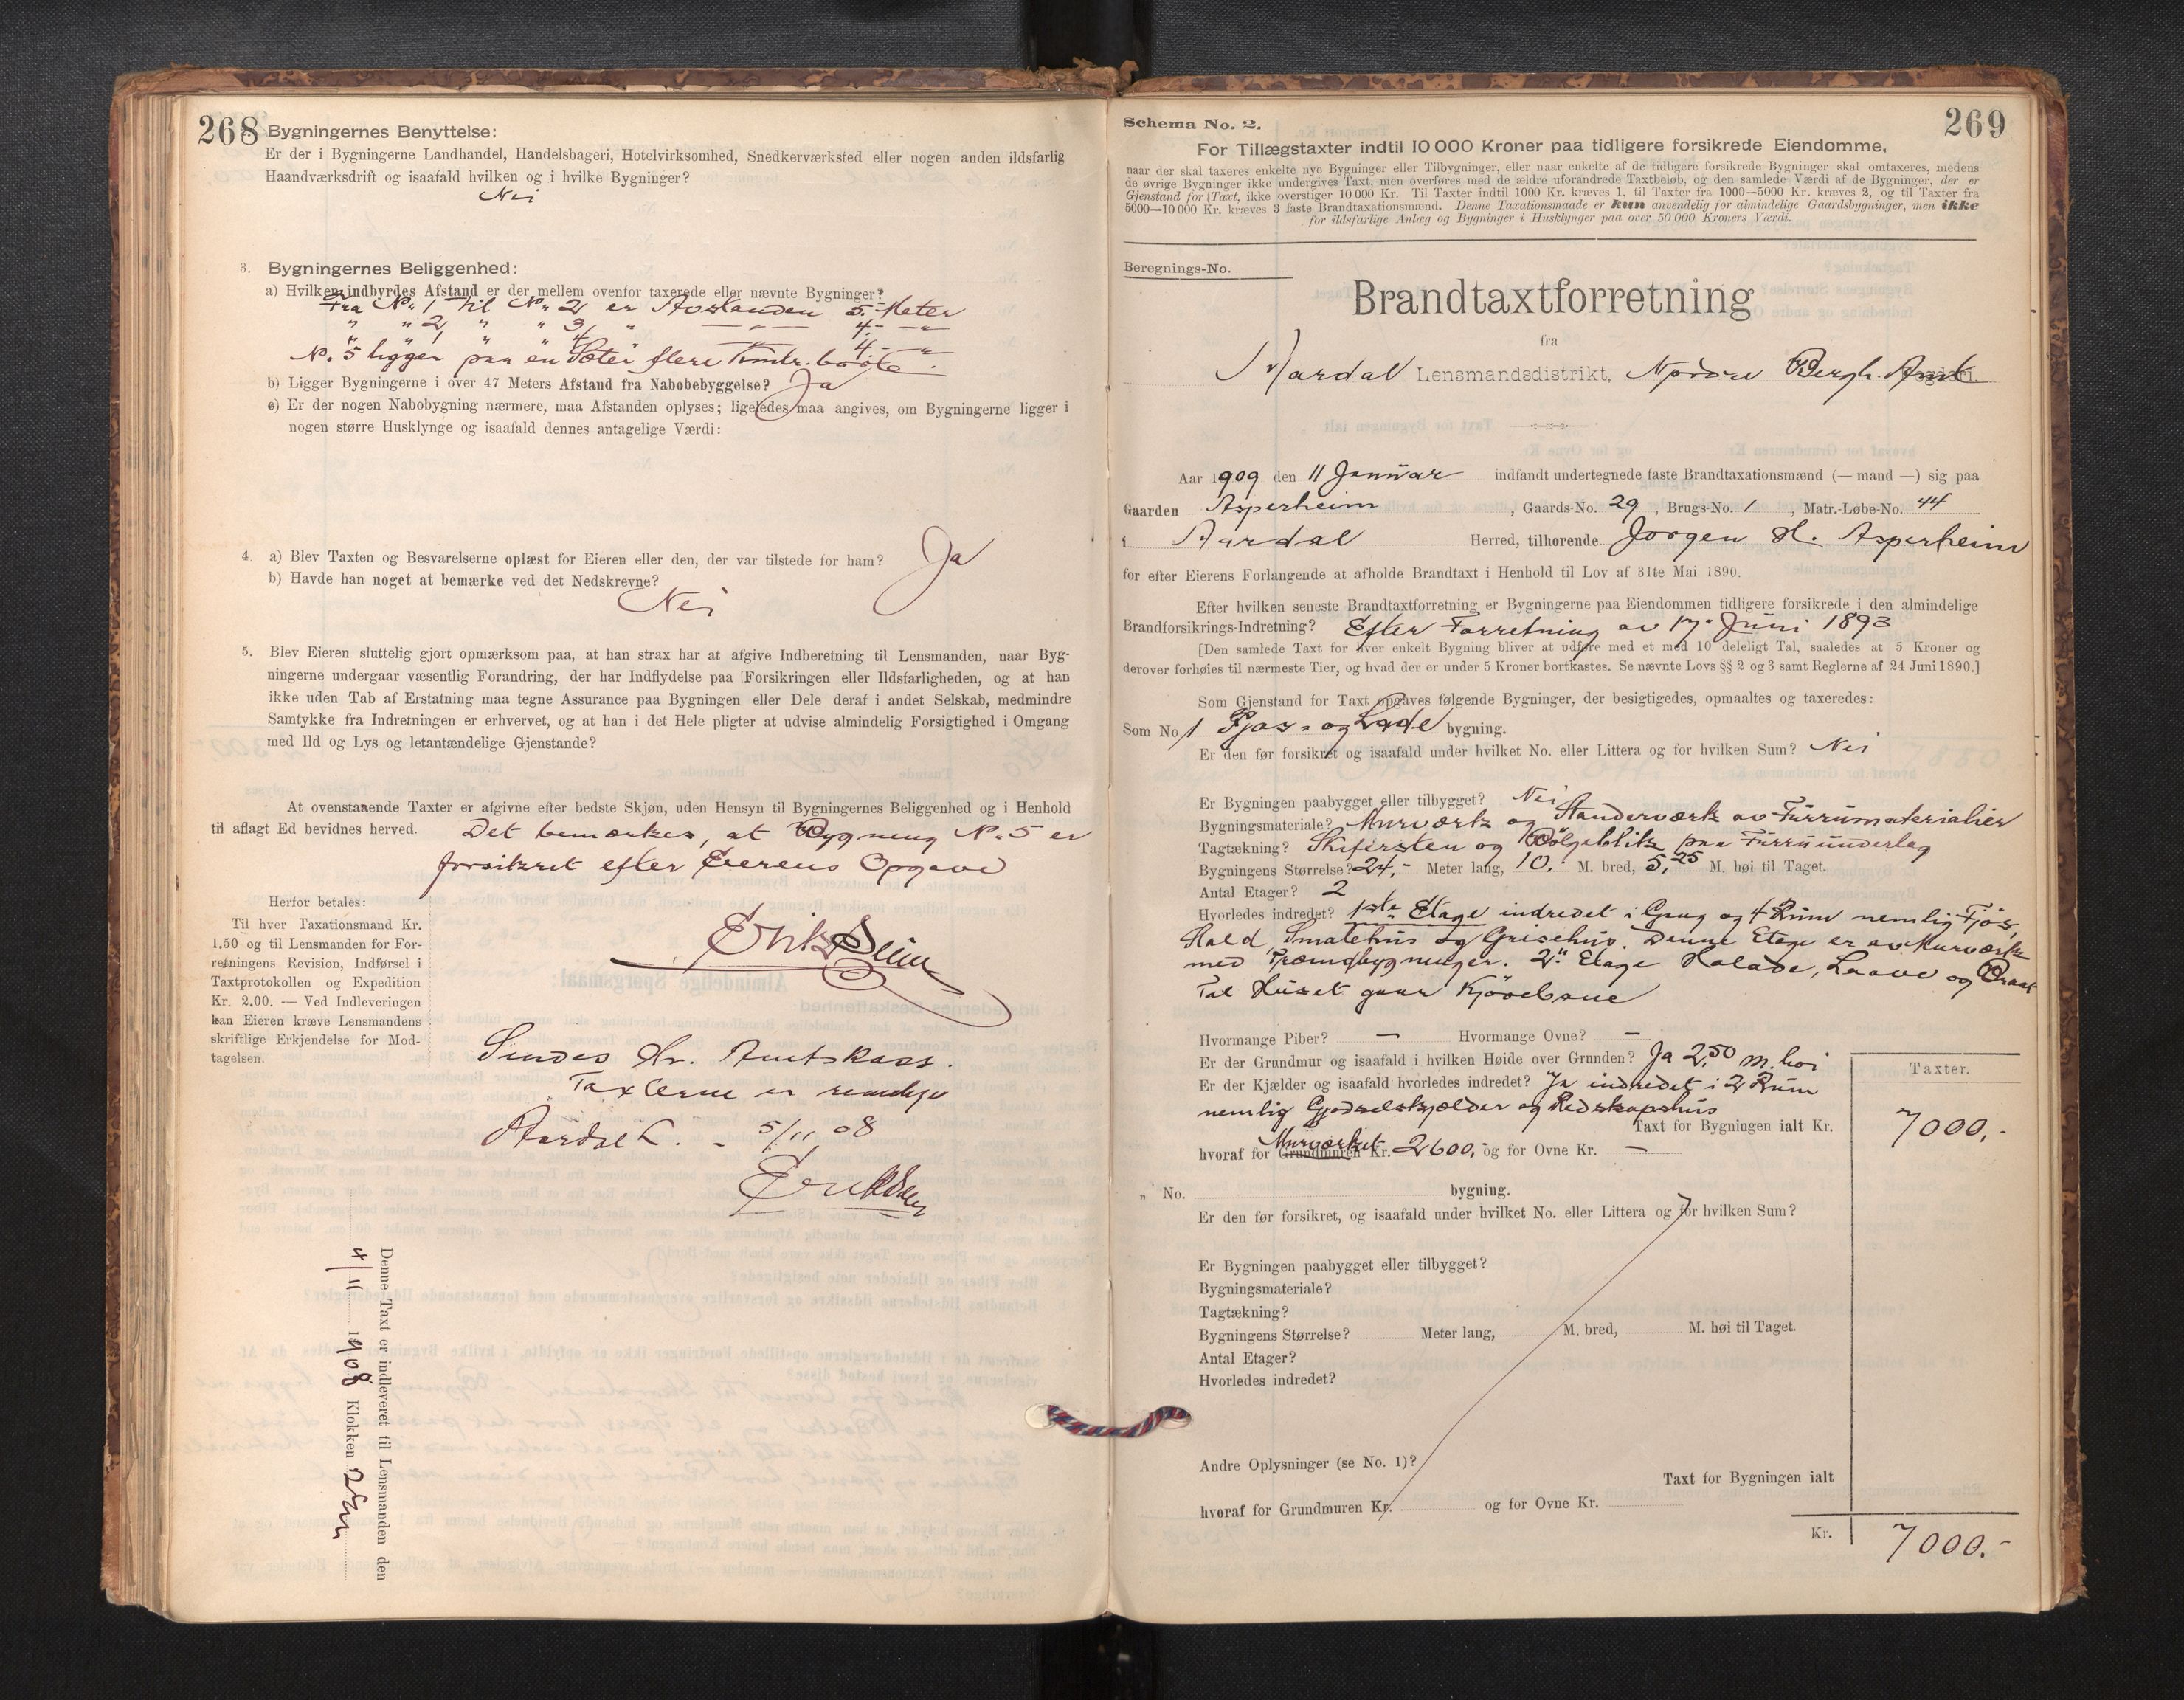 268
Bygningernes Benyttelse:
Er der i Bygningerne Landhandel, Handelsbageri, Hotelvirksomhed, Snedkerværksted eller nogen anden ildsfarlig
Haandværksdrift og isaafald hvilken og i hvilke Bygninger?
Nei
3. Bygningernes Beliggenhed:
a) Hvilken indbyrdes Afstand er der mellem ovenfor taxerede eller nævnte Bygninger?
Fra No. 1 til No. 2 er Avstanden 5.- Meter
" " 2 " " 3 " — " — 4.- — " —
" " " " 4 4.- — " —
No. 5 ligger paa en Sæter flere borte.
b) Ligger Bygningerne i over 47 Meters Afstand fra Nabobebyggelse? Ja
c) Er der nogen Nabobygning nærmere, maa Afstanden oplyses; ligeledes maa angives, om Bygningerne ligger i
nogen større Husklynge og isaafald dennes antagelige Værdi:
4. a) Blev Taxten og Besvarelserne oplæst for Eieren eller den, der var tilstede for ham? Ja
b) Havde han noget at bemærke ved det Nedskrevne?
Nei
5. Blev Eieren sluttelig gjort opmærksom paa, at han strax har at afgive Indberetning til Lensmanden, naar Byg-
ningerne undergaar væsentlig Forandring, der har Indflydelse paa Forsikringen eller Ildsfarligheden, og at han
ikke uden Tab af Erstatning maa tegne Assurance paa Bygningen eller Dele deraf i andet Selskab, medmindre
Samtykke fra Indretningen er erhvervet, og at han i det Hele pligter at udvise almindelig Forsigtighed i Omgang
med Ild og Lys og letantændelige Gjenstande?
At ovenstaaende Taxter er afgivne efter bedste Skjøn, uden Hensyn til Bygningernes Beliggenhed og i Henhold
til aflagt Ed bevidnes herved. Det bemærkes, at Bygning No. 5 er
forsikret efter Eierens Opgave
Herfor betales:
Til hver Taxationsmand Kr.
1.50 og til Lensmanden for For-
retningens Revision, Indførsel i
Taxtprotokollen og Expedition
Kr. 2.00. — Ved Indleveringen
kan Eieren kræve Lensmandens
skriftlige Erkjendelse for Mod-
tagelsen.
Erik Seim
Sendes Hr. Amtskass.
Taxterne er
Aardal L. - 5/11 08
Denne Taxt er indleveret til Lensmanden den
4/11 1908 Klokken 2
269
Schema No. 2.
For Tillægstaxter indtil 10 000 Kroner paa tidligere forsikrede Eiendomme,
naar der skal taxeres enkelte nye Bygninger eller Tilbygninger, eller naar enkelte af de tidligere forsikrede Bygninger skal omtaxeres, medens
de øvrige Bygninger ikke undergives Taxt, men overføres med de ældre uforandrede Taxtbeløb, og den samlede Værdi af de Bygninger, der er
Gjenstand for Taxt, ikke overstiger 10 000 Kr. Til Taxter indtil 1000 Kr. kræves 1, til Taxter fra 1000—5000 Kr. kræves 2, og til Taxter fra
5000—10 000 Kr. kræves 3 faste Brandtaxationsmænd. Denne Taxationsmaade er kun anvendelig for almindelige Gaardsbygninger, men ikke
for ildsfarlige Anlæg og Bygninger i Husklynger paa over 50 000 Kroners Værdi.
Beregnings-No.
Brandtaxtforretning
fra
Aardal Lensmandsdistrikt, Nordre Bergh. Amt
Aar 1909 den 11 Januar indfandt undertegnede faste Brandtaxationsmænd (— mand —) sig paa
Gaarden Asperheim, Gaards-No. 29, Brugs-No. 1, Matr.-Løbe-No. 44
i Aardal Herred, tilhørende Jørgen H. Asperheim
for efter Eierens Forlangende at afholde Brandtaxt i Henhold til Lov af 31te Mai 1890.
Efter hvilken seneste Brandtaxtforretning er Bygningerne paa Eiendommen tidligere forsikrede i den almindelige
Brandforsikrings-Indretning? Efter Forretning av 17. Juni 1893
[Den samlede Taxt for hver enkelt Bygning bliver at udføre med et med 10 deleligt Tal, saaledes at 5 Kroner og
derover forhøies til nærmeste Tier, og hvad der er under 5 Kroner bortkastes. Se nævnte Lovs §§ 2 og 3 samt Reglerne af 24 Juni 1890.]
Som Gjenstand for Taxt opgaves følgende Bygninger, der besigtigedes, opmaaltes og taxeredes:
Som No. 1 Fjøs- og Lade bygning.
Er den før forsikret og isaafald under hvilket No. eller Littera og for hvilken Sum? Nei
Er Bygningen paabygget eller tilbygget? Nei
Bygningsmateriale? Murværk og Standerværk av Furrumaterialier
Tagtækning? Skifersten og Bølgeblik paa Furruunderlag
Bygningens Størrelse? 24,- Meter lang, 10. M. bred, 5,25 M. høi til Taget.
Antal Etager? 2
Hvorledes indredet? 1ste Etage indredet i Gang og 4 Rum nemlig Fjøs,
Stald, Smalehus og Grisehus. Denne Etage er av Murværk
med Træombygninger. 2" Etage Halade, Laave og
Til Huset gaar Kjørebane
Hvormange Piber? — Hvormange Ovne? —
Er der Grundmur og isaafald i hvilken Høide over Grunden? Ja 2,50 m. høi
Er der Kjælder og isaafald hvorledes indredet? Ja indredet i 2 Rum
nemlig Gjødselskjælder og Redskapshus
Taxter.
Taxt for Bygningen ialt Kr. 7000,-
hvoraf for Grundmuren Murværket Kr. 2600,- og for Ovne Kr. —
" No. bygning.
Er den før forsikret, og isaafald under hvilket No. eller Littera og for hvilken Sum?
Er Bygningen paabygget eller tilbygget?
Bygningsmateriale?
Tagtækning?
Bygningens Størrelse? Meter lang, M. bred, M. høi til Taget.
Antal Etager?
Hvorledes indredet?
Andre Oplysninger (se No. 1)?
Taxt for Bygningen ialt
hvoraf for Grundmuren Kr. og for Ovne Kr.
Kr. 7000.-